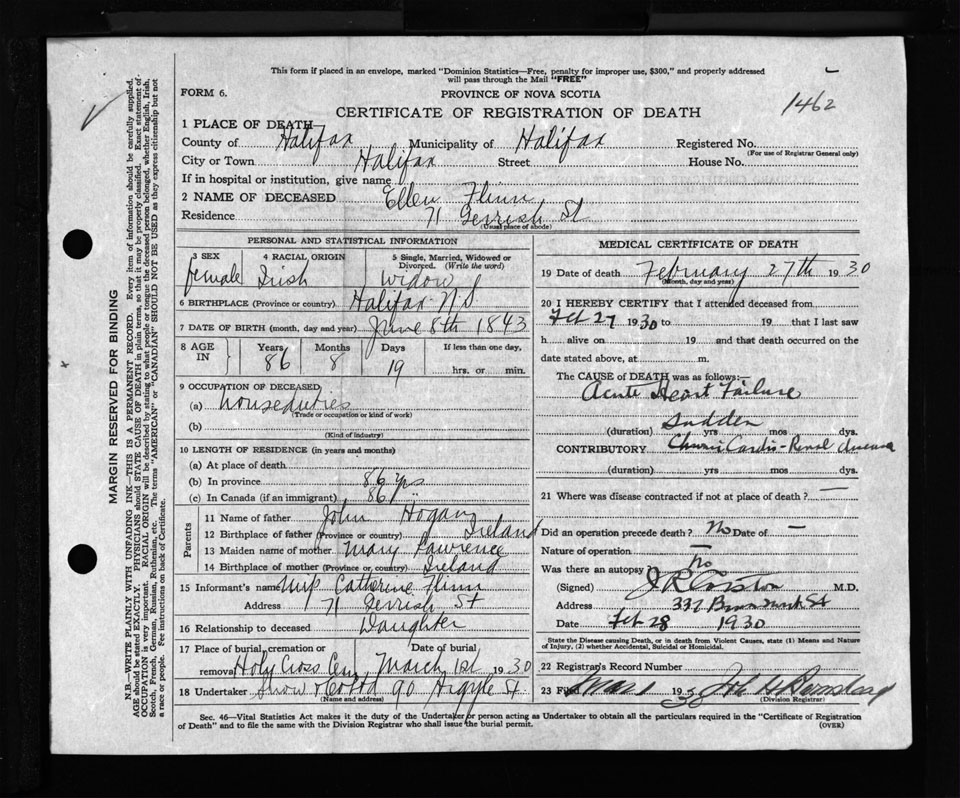 This form if placed in an envelope, marked "Dominion Statistics—Free, penalty for improper use, $300," and properly addressed
will pass through the Mail "FREE"
FORM 6.
PROVINCE OF NOVA SCOTIA
CERTIFICATE OF REGISTRATION OF DEATH
1462
1 PLACE OF DEATH—
County of Halifax Municipality of Halifax Registered No.
(For use of Registrar General only)
City or Town Halifax Street House No.
If in hospital or institution, give name
2 NAME OF DECEASED Ellen Flinn
Residence 71 Gerrish St
(Usual place of abode)
PERSONAL AND STATISTICAL INFORMATION
3 SEX 4 RACIAL ORIGIN 5 Single, Married, Widowed or Divorced. (Write the word)
female Irish Widow
6 BIRTHPLACE (Province or country) Halifax N.S
7 DATE OF BIRTH (month, day and year) June 8th 1843
8 AGE IN Years Months Days If less than one day,
86 8 19 hrs. or min.
9 OCCUPATION OF DECEASED
(a) houseduties
(Trade or occupation or kind of work)
(b)
(Kind of industry)
10 LENGTH OF RESIDENCE (in years and months)
(a) At place of death
(b) In province 86 yrs
(c) In Canada (if an immigrant) 86 "
Parents
11 Name of father John Hogan
12 Birthplace of father (Province or country) Ireland
13 Maiden name of mother Mary Lawrence
14 Birthplace of mother (Province or country) Ireland
15 Informant's name Catherine Flinn
Address 71 Gerrish St
16 Relationship to deceased Daughter
17 Place of burial, cremation or removal Date of burial
Holy Cross Cem March 1st 1930
18 Undertaker Snow & Co Ltd 90 Argyle St
(Name and address)
MEDICAL CERTIFICATE OF DEATH
19 Date of death February 27th 1930
(Month, day and year)
20 I HEREBY CERTIFY that I attended deceased from
Feb 27 1930 to 19 that I last saw
h alive on 19 and that death occurred on the
date stated above, at m.
The CAUSE of DEATH was as follows:—
Acute Heart Failure
Sudden
(duration) yrs mos dys.
CONTRIBUTORY Cardio-Renal
(duration) yrs mos dys.
21 Where was disease contracted if not at place of death? —
Did an operation precede death? No Date of —
Nature of operation —
Was there an autopsy no
(Signed) M.D.
Address St
Date Feb 28 1930
State the Disease causing Death, or in death from Violent Causes, state (1) Means and Nature
of Injury, (2) whether Accidental, Suicidal or Homicidal.
22 Registrar's Record Number
23 Filed Mar 1 1930
(Division Registrar)
Sec. 46—Vital Statistics Act makes it the duty of the Undertaker or person acting as Undertaker to obtain all the particulars required in the "Certificate of Registration
of Death" and to file the same with the Division Registrar who shall issue the burial permit.
(OVER)
MARGIN RESERVED FOR BINDING
N.B.—WRITE PLAINLY WITH UNFADING INK—THIS IS A PERMANENT RECORD. Every item of information should be carefully supplied.
AGE should be stated EXACTLY. PHYSICIANS should STATE CAUSE OF DEATH in plain terms, so that it may be properly classified. Exact statement of
OCCUPATION is very important. RACIAL ORIGIN will be described by stating to what people or tongue the deceased person belonged, whether English, Irish,
Scotch, French, German, Russian, Ruthenian, etc. The terms "AMERICAN" or "CANADIAN" SHOULD NOT BE USED as they express citizenship but not
a race or people. See instructions on back of Certificate.